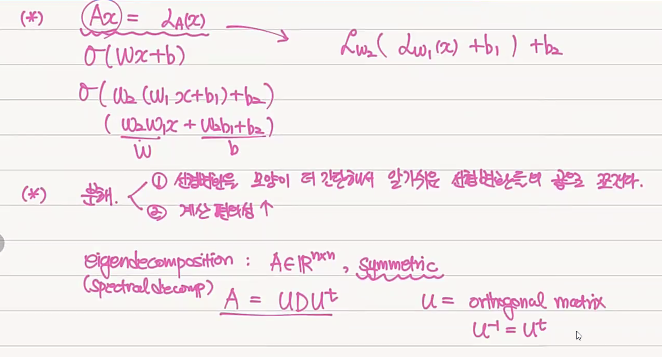 (*) Ax = 𝓛_A(x) → 𝓛_{W₂}(𝓛_{W₁}(x) + b₁) + b₂
σ(Wx+b)
σ(W₂(W₁x+b₁)+b₂)
(W₂W₁x + W₂b₁+b₂)
W b
(*) 분해. ① 선형변환을 모양이 더 간단해서 알기쉬운 선형변환들의 곱으로 쪼갠다.
② 계산 편의성 ↑
eigendecomposition : A∈ℝⁿˣⁿ, symmetric
(spectral decomp) A = UDUᵗ U = orthogonal matrix
U⁻¹ = Uᵗ